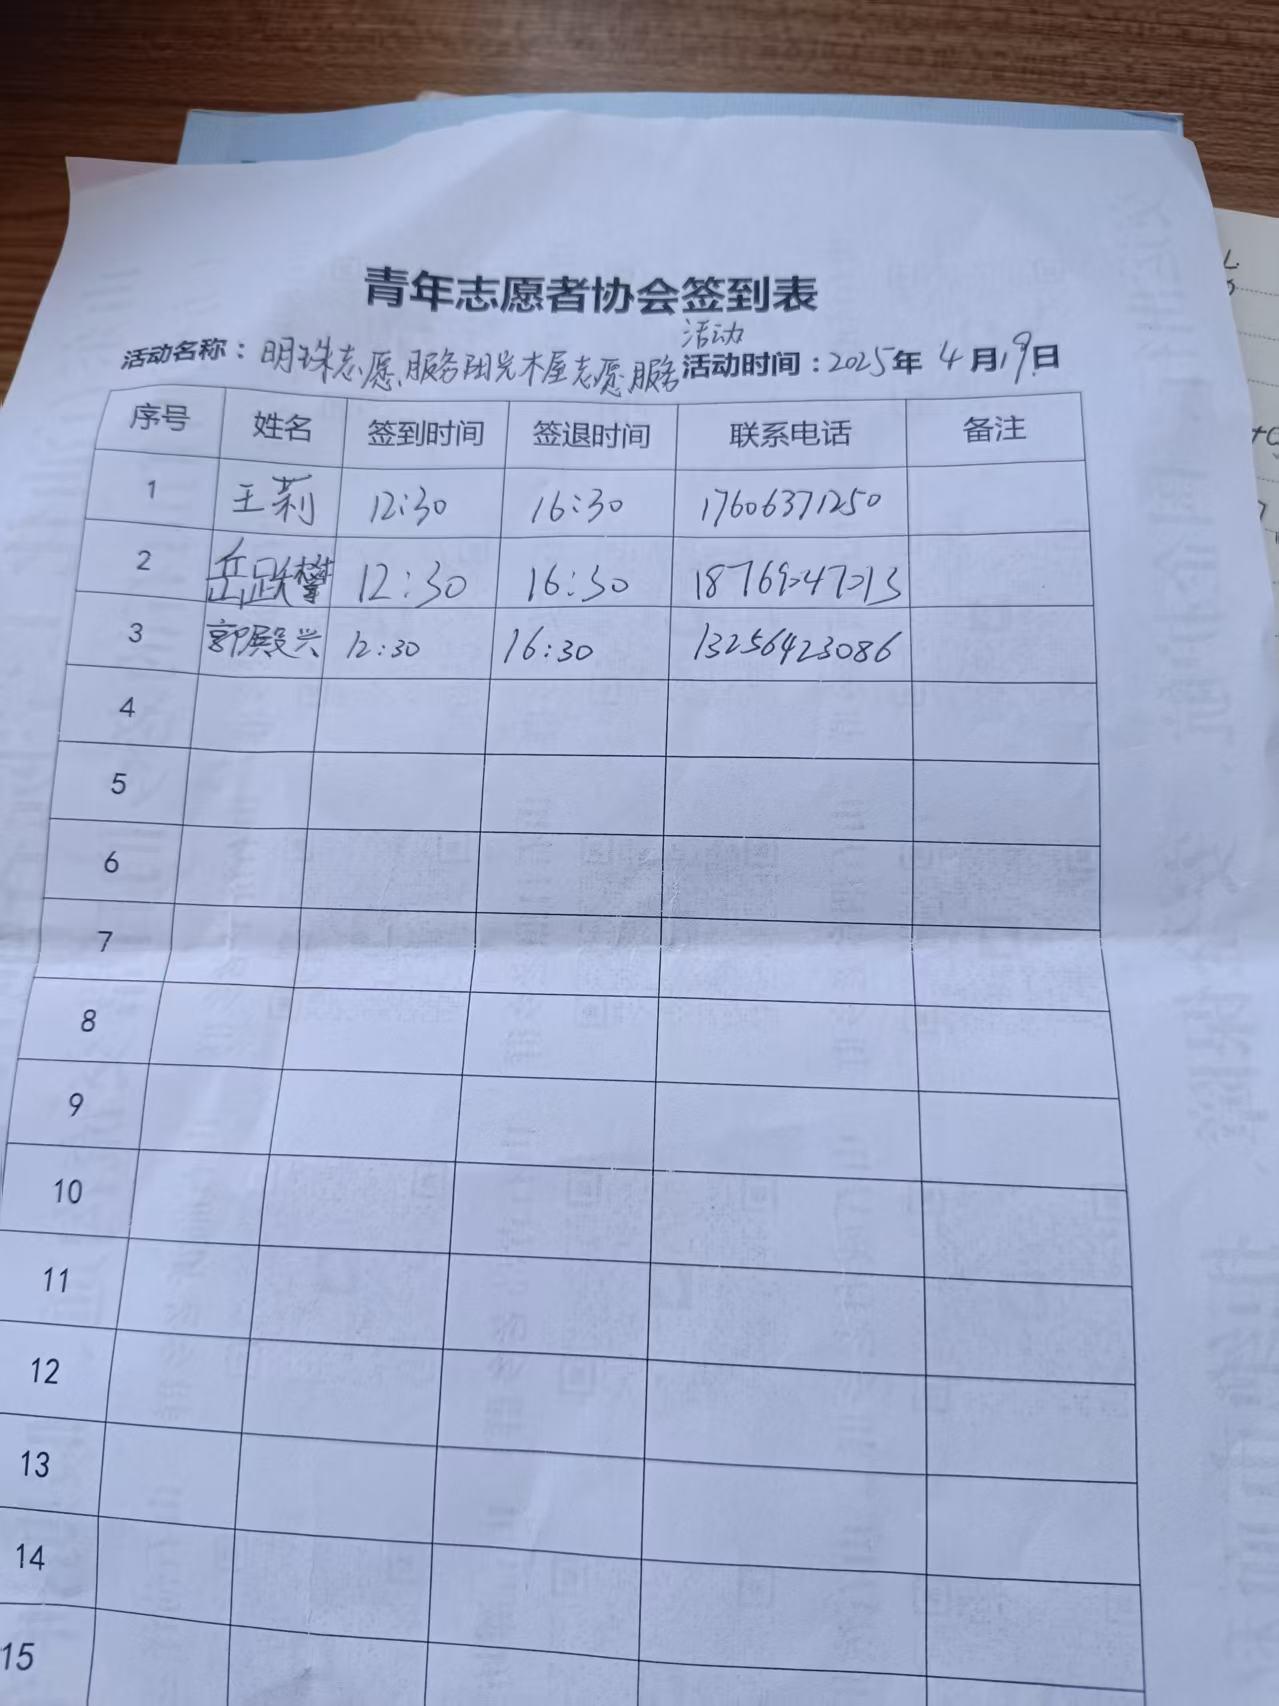 青年志愿者协会签到表
活动
活动名称：明珠志愿服务阳光木屋志愿服务 活动时间：2025年 4月19日
序号 姓名 签到时间 签退时间 联系电话 备注
1 王莉 12:30 16:30 17606371250
2 岳跃攀 12:30 16:30 18769247213
3 郭殿兴 12:30 16:30 13256423086
4
5
6
7
8
9
10
11
12
13
14
15